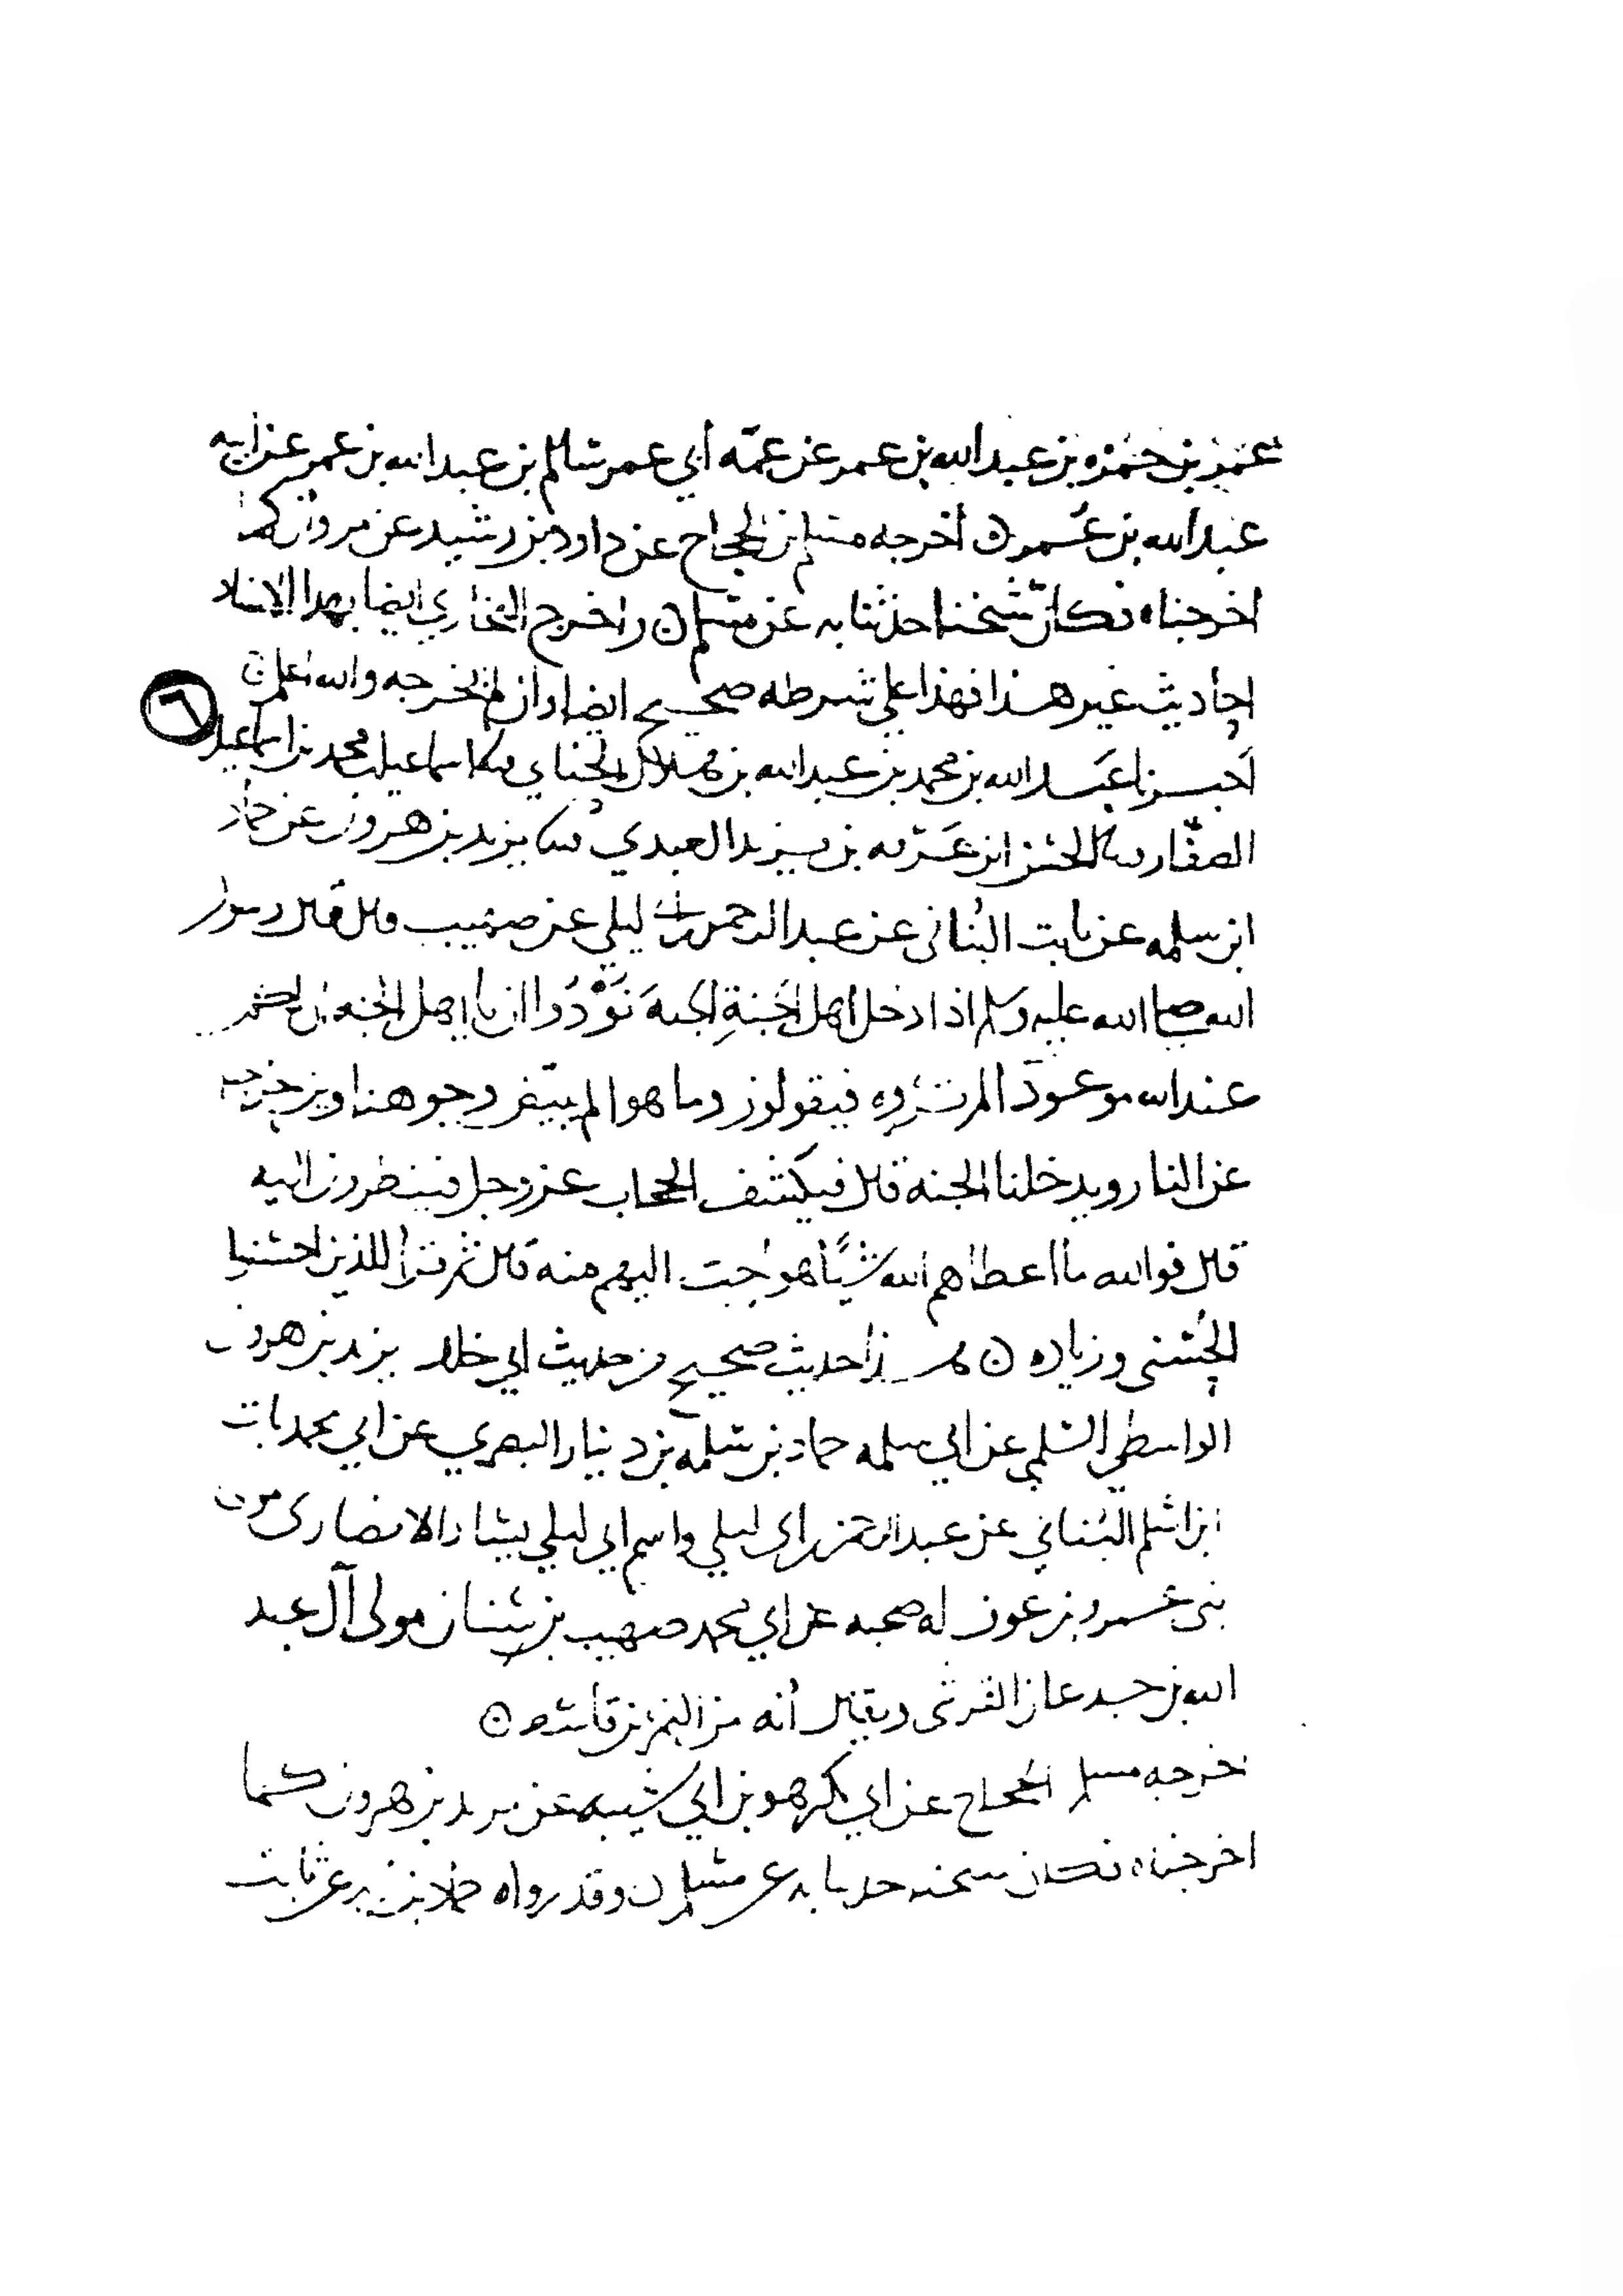 عمر بن حمزه بن عبد الله بن عمر عن عمّه أبي عمر سالم بن عبد الله بن عمر عن ابيه
عبد الله بن عُمر ن أخرجه مسلم بن الحجاج عن داود بن رشيد عن مروان كما
اخرجناه فكانّ شيخنا حدّثنا به عن مسلم ن واخرج البخاري ايضا بهذا الاسناد
احاديث غير هذا فهذا علي شرطه صحيح ايضا وان لم يخرجه والله اعلم ن
٦
أخبرنا عبد الله بن محمد بن عبد الله بن هلال الحنّاي نا اسماعيل بن محمد بن اسماعيل
الصفّار نا الحسن بن عَرَفه بن يزيد العبدي نا يزيد بن هرون عن حماد
ابن سلمه عن ثابت البُناني عن عبد الرحمن بن ابي ليلي عن صهيب قال قال رسول
الله صلى الله عليه وسلم اذا دخل اهل الجنةِ الجنهَ نُوْدُوا ان يا اهل الجنه ان لكم
عند الله موعودًا لم تروه فيقولون وما هو الم يبيّض وجوهنا ويزحزحنا
عن النار ويدخلنا الجنه قال فيكشف الحجاب عز وجل فينظرون اليه
قال فوالله ما اعطاهم الله شيًا هو احبّ اليهم منه قال ثم قرأ للذين احسنوا
الحُسنى وزياده ن هذا حديث صحيح من حديث ابي خالد يزيد بن هرون
الواسطي السلمي عن ابي سلمه حماد بن سلمه بن دينار البصري عن ابي محمد ثابت
ابن اسلم البُناني عن عبد الرحمن بن ابي ليلي واسم ابي ليلي يسار الانصاري من
بني عمرو بن عوف له صحبه عن ابي محمد صهيب بن سنان مولى آل عبد
الله بن جدعان القرشي ويقال أنه من النمر بن قاسط ن
اخرجه مسلم بن الحجاج عن ابي بكر هو بن ابي شيبه عن يزيد بن هرون كما
اخرجناه فكان شيخنا حدثنا به عن مسلم ن وقد رواه حماد بن زيد عن ثابت